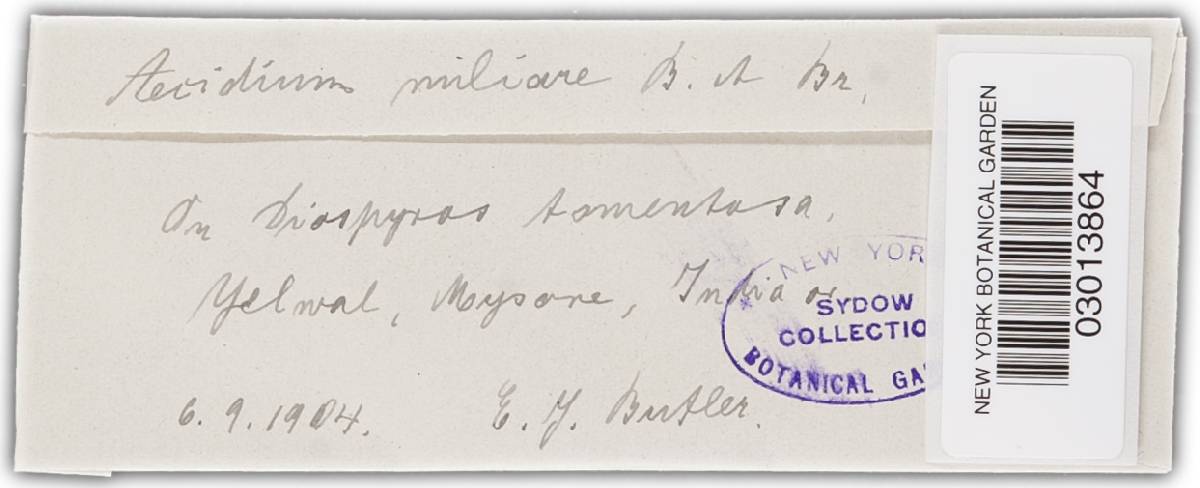 Aecidium miliare B. et Br.
On Diospyros tomentosa.
Yelwal, Mysore, India or.
6. 9. 1904. E. J. Butler.
NEW YOR
SYDOW
COLLECTIO
BOTANICAL GA
NEW YORK BOTANICAL GARDEN
03013864